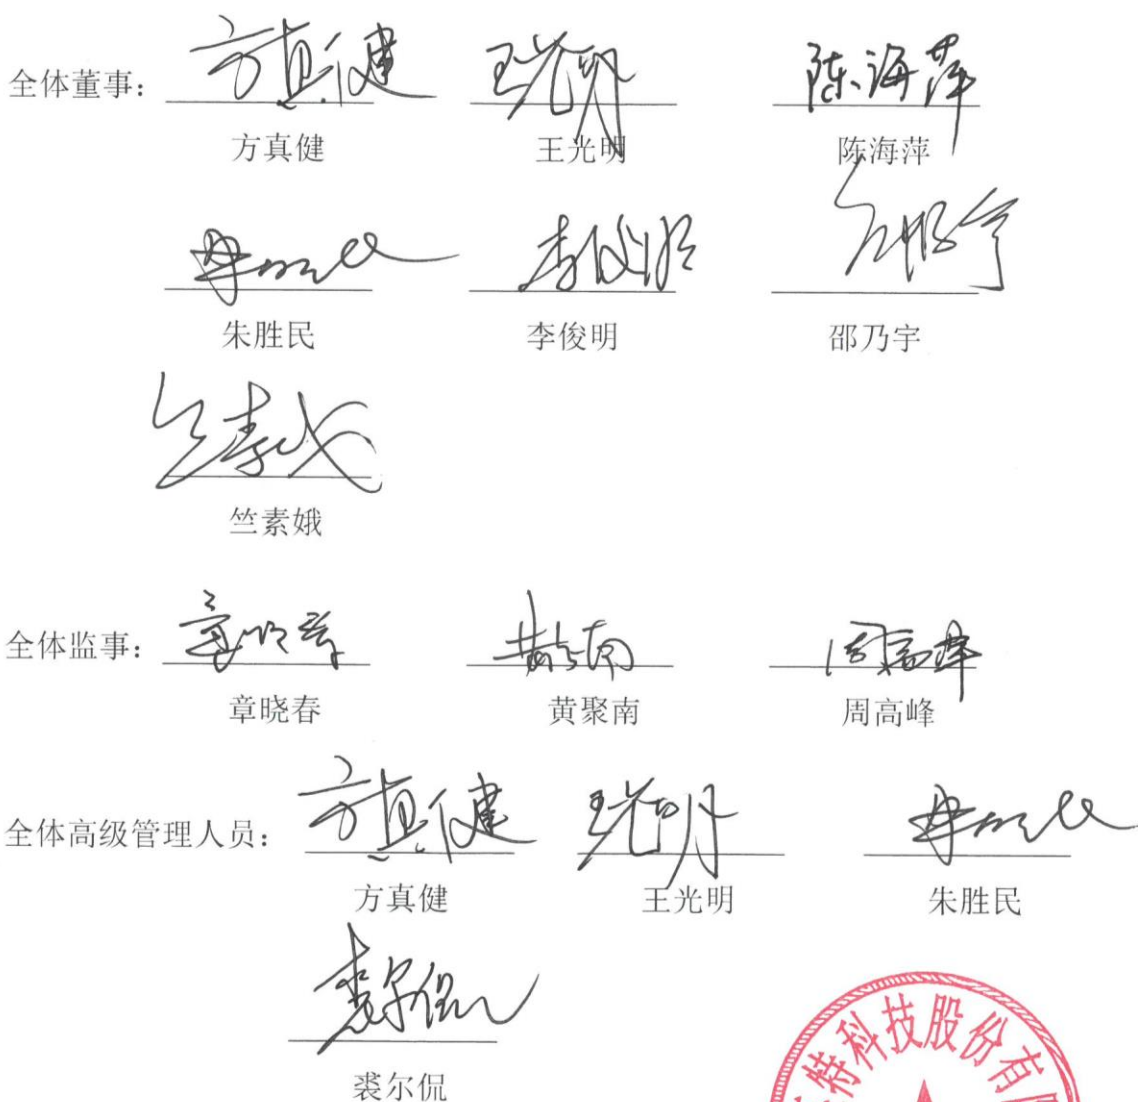 全体董事: 方真健 王光明 陈海萍
方真健 王光明 陈海萍
朱胜民 李俊明 邵乃宇
竺素娥
全体监事: 章晓春 黄聚南 周高峰
章晓春 黄聚南 周高峰
全体高级管理人员: 方真健 王光明
方真健 王光明 朱胜民
裘尔侃
裘尔侃
特科技股份有限